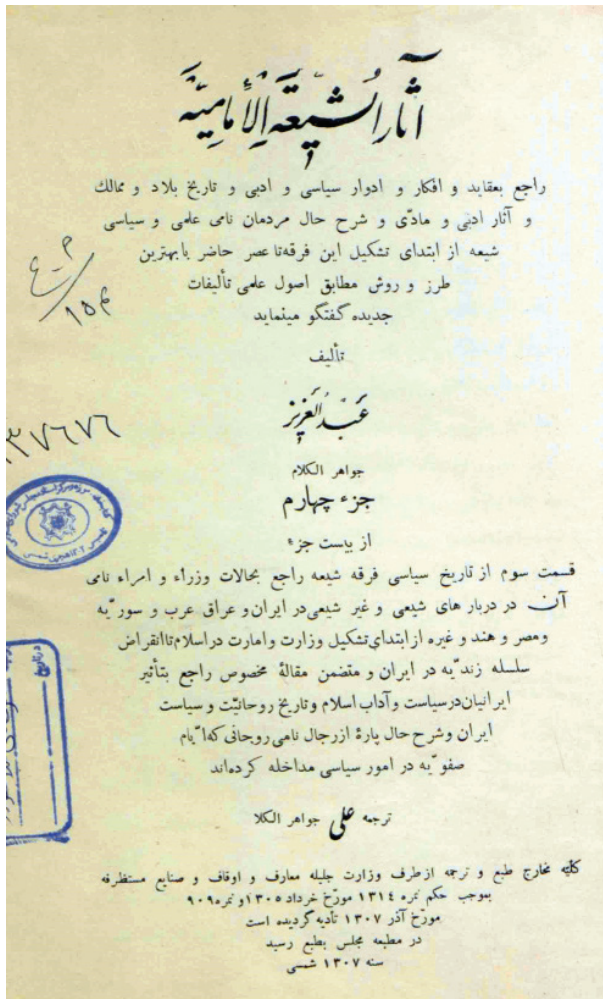 آثار الشیعة الإمامیة
راجع بعقاید و افکار و ادوار سیاسی و ادبی و تاریخ بلاد و ممالك
و آثار ادبی و مادّی و شرح حال مردمان نامی علمی و سیاسی
شیعه از ابتدای تشکیل این فرقه تا عصر حاضر با بهترین
طرز و روش مطابق اصول علمی تألیفات
جدیده گفتگو مینماید
تألیف
عبدالعزیز
جواهر الکلام
جزء چهارم
از بیست جزء
قسمت سوم از تاریخ سیاسی فرقه شیعه راجع بحالات وزراء و امراء نامی
آن در دربار های شیعی و غیر شیعی در ایران و عراق عرب و سوریّه
و مصر و هند و غیره از ابتدای تشکیل وزارت و امارت در اسلام تا انقراض
سلسله زندیّه در ایران و متضمن مقالهٔ مخصوص راجع بتأثیر
ایرانیان در سیاست و آداب اسلام و تاریخ روحانیّت و سیاست
ایران و شرح حال پارهٔ از رجال نامی روحانی که ایّام
صفویّه در امور سیاسی مداخله کرده‌اند
ترجمه علی جواهر الکلا
کلیّه مخارج طبع و ترجمه از طرف وزارت جلیله معارف و اوقاف و صنایع مستظرفه
بموجب حکم نمره ۱۳۱۴ مورّخ خرداد ۱۳۰۵ و نمره ۹۰۹
مورّخ آذر ۱۳۰۷ تأدیه گردیده است
در مطبعه مجلس بطبع رسید
سنه ۱۳۰۷ شمسی
۳۷۶۷۶